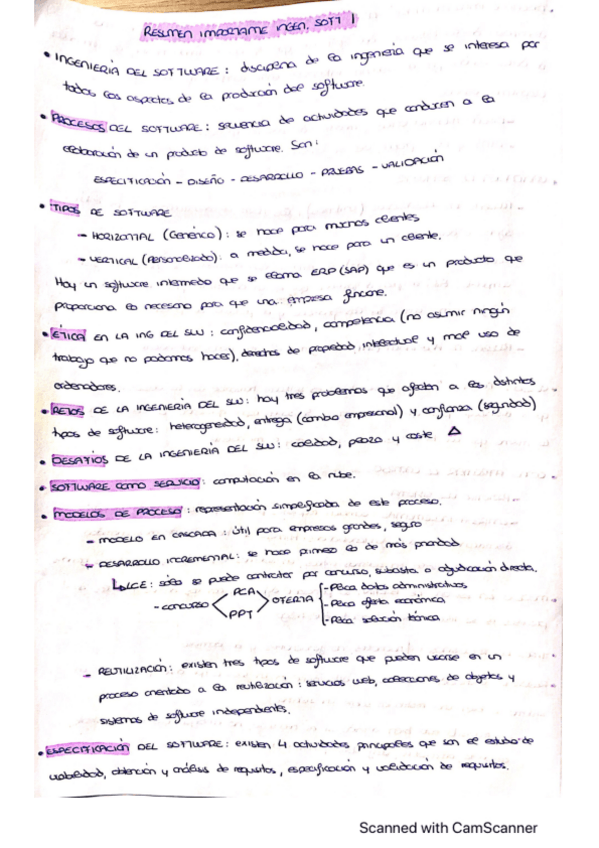 RESUMEN IMPORTANTE INGEN. SOFT 1
• INGENIERÍA DEL SOFTWARE : disciplina de la ingeniería que se interesa por
todos los aspectos de la producción del software.
• PROCESOS DEL SOFTWARE : secuencia de actividades que conducen a la
elaboración de un producto de software. Son :
ESPECIFICACIÓN – DISEÑO – DESARROLLO – PRUEBAS – VALIDACIÓN
• TIPOS DE SOFTWARE
– HORIZONTAL (Genérico) : se hace para muchos clientes
– VERTICAL (Personalizado): a medida, se hace para un cliente.
Hay un software intermedio que se llama ERP (SAP) que es un producto que
proporciona lo necesario para que una empresa funcione.
• ÉTICA EN LA ING DEL SW : confidencialidad, competencia (no asumir ningún
trabajo que no podamos hacer), derechos de propiedad intelectual y mal uso de
ordenadores.
• RETOS DE LA INGENIERÍA DEL SW : hay tres problemas que afectan a los distintos
tipos de software : heterogeneidad, entrega (cambio empresarial) y confianza (seguridad)
• DESAFÍOS DE LA INGENIERÍA DEL SW : calidad, plazo y coste △
• SOFTWARE COMO SERVICIO : computación en la nube.
• MODELOS DE PROCESO : representación simplificada de este proceso.
– MODELO EN CASCADA : útil para empresas grandes, seguro
– DESARROLLO INCREMENTAL : se hace primero lo de más prioridad
↳ LCE : sólo se puede contratar por concurso, subasta o adjudicación directa.
– CONCURSO < PCA PPT > OFERTA { – Plica datos administrativos
– Plica oferta económica
– Plica solución técnica
– REUTILIZACIÓN : existen tres tipos de software que pueden usarse en un
proceso orientado a la reutilización : servicios web, colecciones de objetos y
sistemas de software independientes.
• ESPECIFICACIÓN DEL SOFTWARE : existen 4 actividades principales que son el estudio de
viabilidad, obtención y análisis de requisitos, especificación y validación de requisitos.
Scanned with CamScanner